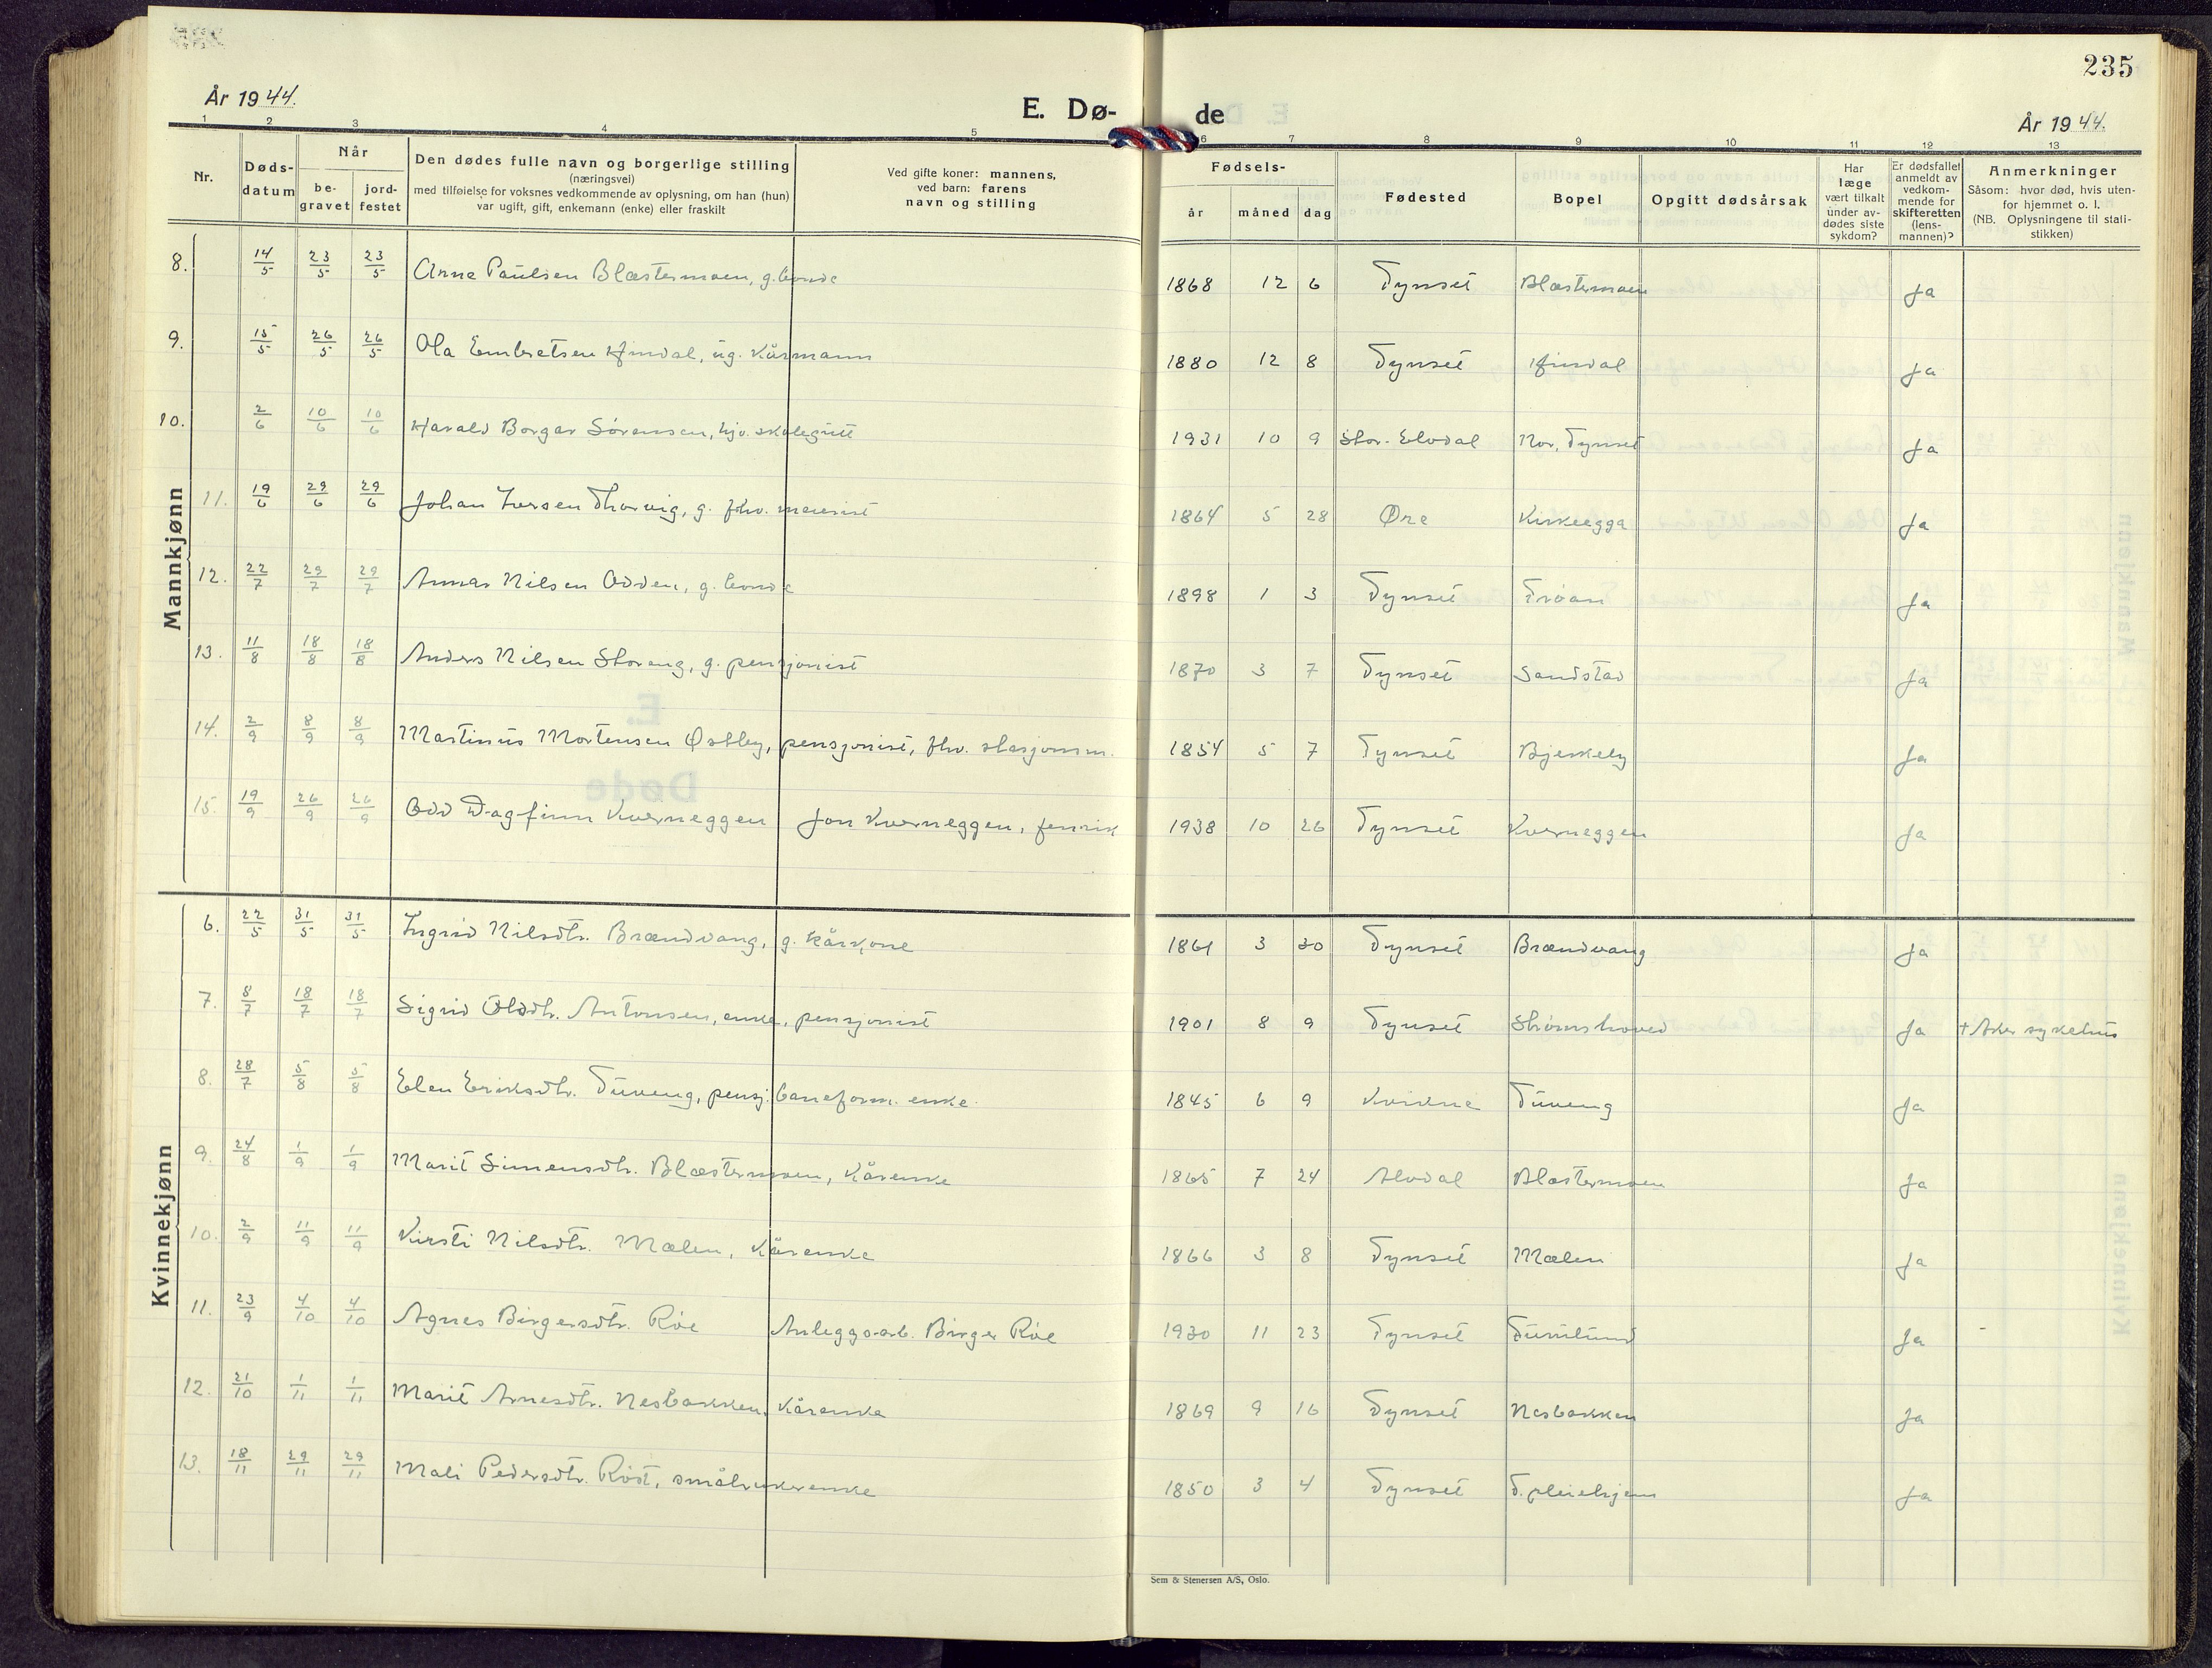 235
År 1944.
E. Dø-
de
År 1944.
1 2 3 4 5 6 7 8 9 10 11 12 13
Nr.
Døds-
datum
Når
be-
gravet
jord-
festet
Den dødes fulle navn og borgerlige stilling
(næringsvei)
med tilføielse for voksnes vedkommende av oplysning, om han (hun)
var ugift, gift, enkemann (enke) eller fraskilt
Ved gifte koner: mannens,
ved barn: farens
navn og stilling
Fødsels-
år måned dag
Fødested
Bopel
Opgitt dødsårsak
Har
læge
vært tilkalt
under av-
dødes siste
sykdom?
Er dødsfallet
anmeldt av
vedkom-
mende for
skifteretten
(lens-
mannen)?
Anmerkninger
Såsom: hvor død, hvis uten-
for hjemmet o. l.
(NB. Oplysningene til stati-
stikken)
Mannkjønn
8. 14/5 23/5 23/5 Arne Paulsen Blæstermoen, g. bonde 1868 12 6 Tynset Blæstermoen Ja
9. 15/5 26/5 26/5 Ola Embretsen Hindal, ug. kårmann 1880 12 8 Tynset Hindal Ja
10. 2/6 10/6 10/6 Harald Borgar Sörensen, hjv. skolegutt 1931 10 9 Stor-Elvdal Nor, Tynset Ja
11. 19/6 29/6 29/6 Johan Iversen Thorvig, g. fhv. meierist 1864 5 28 Øre Kirkeegga Ja
12. 22/7 29/7 29/7 Annar Nilsen Odden, g. bonde 1898 1 3 Tynset Tröan Ja
13. 11/8 18/8 18/8 Anders Nilsen Storeng, g. pensjonist 1870 3 7 Tynset Sandstad Ja
14. 2/9 8/9 8/9 Martinus Mortensen Østby, pensjonist, fhv. stasjonsm. 1854 5 7 Tynset Bjerkely Ja
15. 19/9 26/9 26/9 Odd Dagfinn Kverneggen Jon Kverneggen, fenrik 1938 10 26 Tynset Kverneggen Ja
Kvinnekjønn
6. 22/5 31/5 31/5 Ingrid Nilsdtr. Brændvang, g. kårkone 1861 3 30 Tynset Brændvang Ja
7. 8/7 18/7 18/7 Sigrid Olsdtr. Antonsen, enke, pensjonist 1901 8 9 Tynset Strömshoved Ja + Aker sykehus
8. 28/7 5/8 5/8 Elen Eriksdtr. Tuveng, pensj. baneform. enke 1845 6 9 Kvikne Tuveng Ja
9. 24/8 1/9 1/9 Marit Simensdtr. Blæstermoen, kårenke 1865 7 24 Alvdal Blæstermoen Ja
10. 2/9 11/9 11/9 Kirsti Nilsdtr. Mælen, kårenke 1866 3 8 Tynset Mælen Ja
11. 23/9 4/10 4/10 Agnes Birgersdtr. Röe Anleggsarb. Birger Röe 1930 11 23 Tynset Furulund Ja
12. 21/10 1/11 1/11 Marit Arnesdtr. Nesbakken, kårenke 1869 9 16 Tynset Nesbakken Ja
13. 18/11 29/11 29/11 Mali Pedersdtr. Röst, småbrukerenke 1850 3 4 Tynset T. pleiehjem Ja
Sem & Stenersen A/S, Oslo.